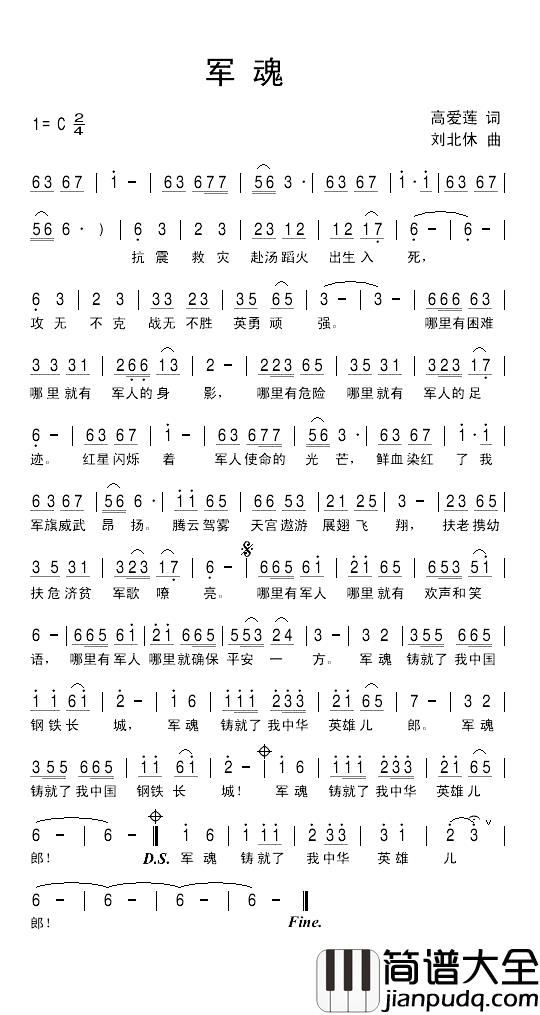 军 魂
1= C 2/4
高爱莲 词
刘北休 曲
63 67 | 1 - | 63 677 | 56 3 · | 63 67 | 1 · 1 | 63 67 |
56 6 · ) | 6 3 | 2 3 | 23 12 | 12 17 | 6 - | 6 - |
抗 震 救 灾 赴汤 蹈火 出生 入 死,
6 3 | 2 3 | 33 23 | 35 65 | 3 - | 3 - | 666 63 |
攻 无 不 克 战无 不胜 英勇 顽 强。 哪里有困难
3 3 31 | 266 13 | 2 - | 223 65 | 35 31 | 223 17 |
哪 里 就有 军人的 身 影, 哪里有危险 哪里 就有 军人的 足
6 - | 63 67 | 1 - | 63 677 | 56 3 · | 63 67 | 1 · 1 |
迹。 红星 闪烁 着 军人 使命的 光 芒, 鲜血 染红 了 我
63 67 | 56 6 · | 11 65 | 63 53 | 21 25 | 3 - | 23 65 |
军旗 威武 昂 扬。 腾云 驾雾 天宫 遨游 展翅 飞 翔, 扶老 携幼
3 5 31 | 323 17 | 6 - | 665 61 | 21 65 | 665 35 |
扶 危 济贫 军歌 嘹 亮。 哪里有军人 哪里 就有 欢声和 笑
6 - | 665 61 | 21 665 | 553 24 | 3 - | 3 2 | 355 665 |
语, 哪里有军人 哪里就确保 平安 一 方。 军 魂 铸就了 我中国
1 1 61 | 2 - | 1 6 | 111 233 | 21 65 | 7 - | 3 2 |
钢 铁 长 城, 军 魂 铸就了 我中华 英雄 儿 郎。 军 魂
355 665 | 11 61 | 2 - | 1 6 | 111 233 | 21 65 |
铸就了 我中国 钢铁 长 城! 军 魂 铸就了 我中华 英雄 儿
6 - | 6 - ‖ 1 6 | 1 11 | 2 33 | 3 1 | 2 3 ∨ |
郎! D.S. 军 魂 铸 就了 我 中华 英 雄 儿
6 - | 6 - | 6 - | 6 - ‖
郎! Fine.
简谱大全
jianpudq.com